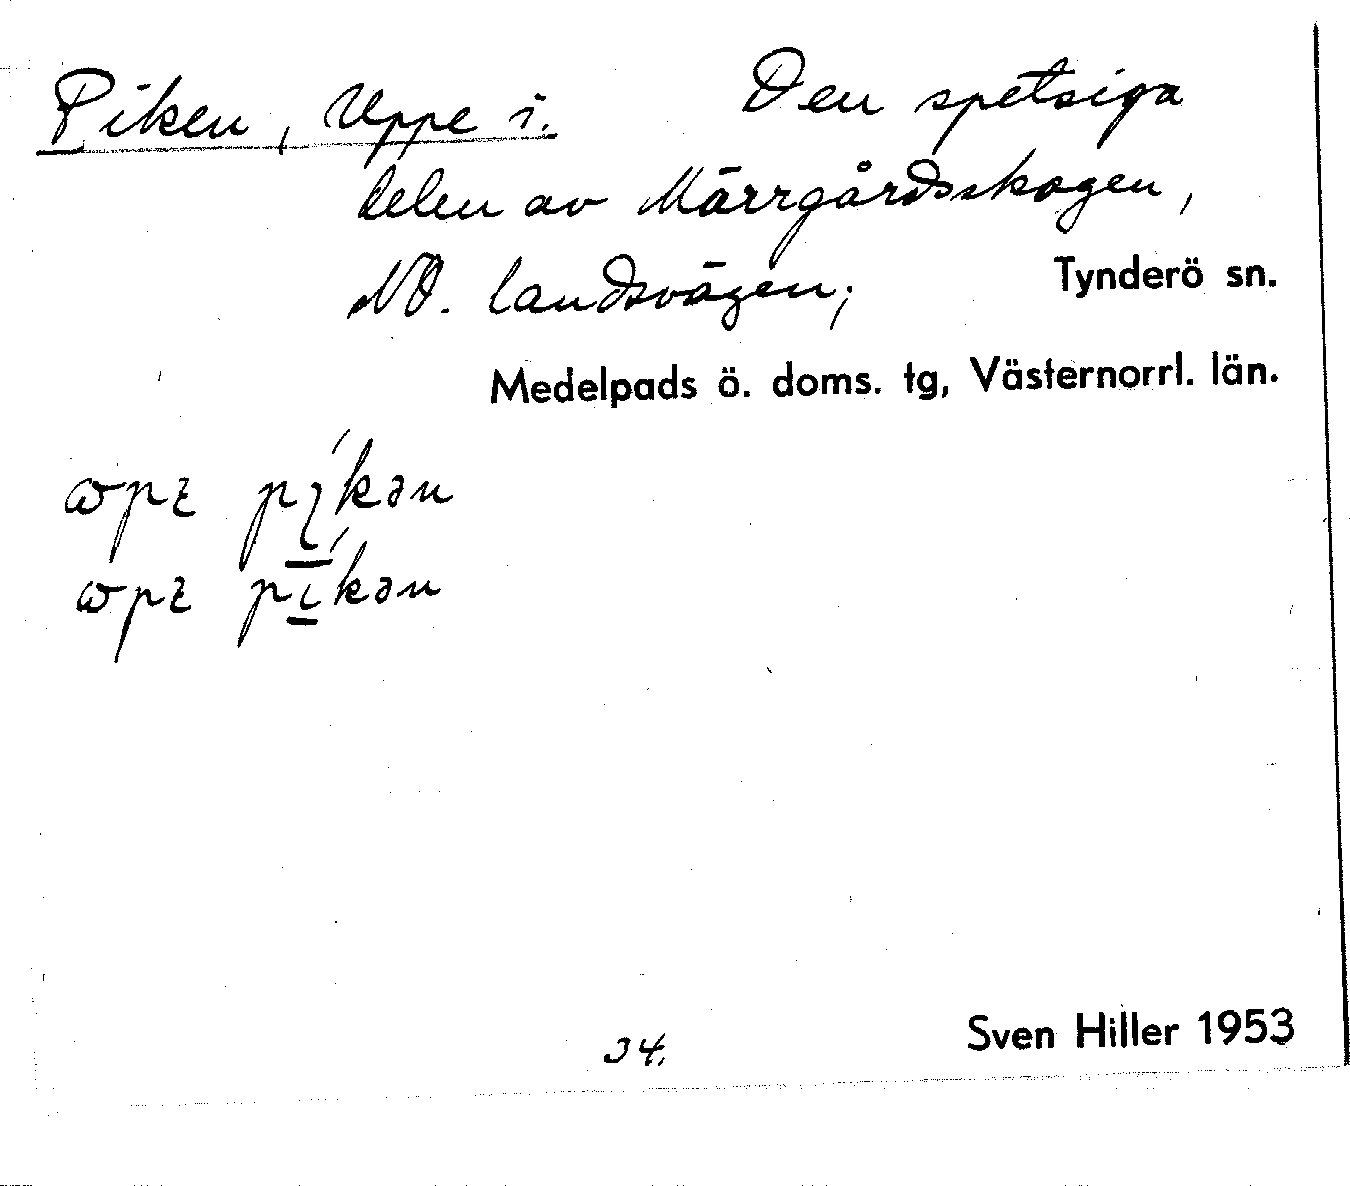 Piken, Uppe i. Den spetsiga
delen av Märrgårdsskogen,
NO. landsvägen;
Tynderö sn.
Medelpads ö. doms. tg, Västernorrl. län.
34.
Sven Hiller 1953